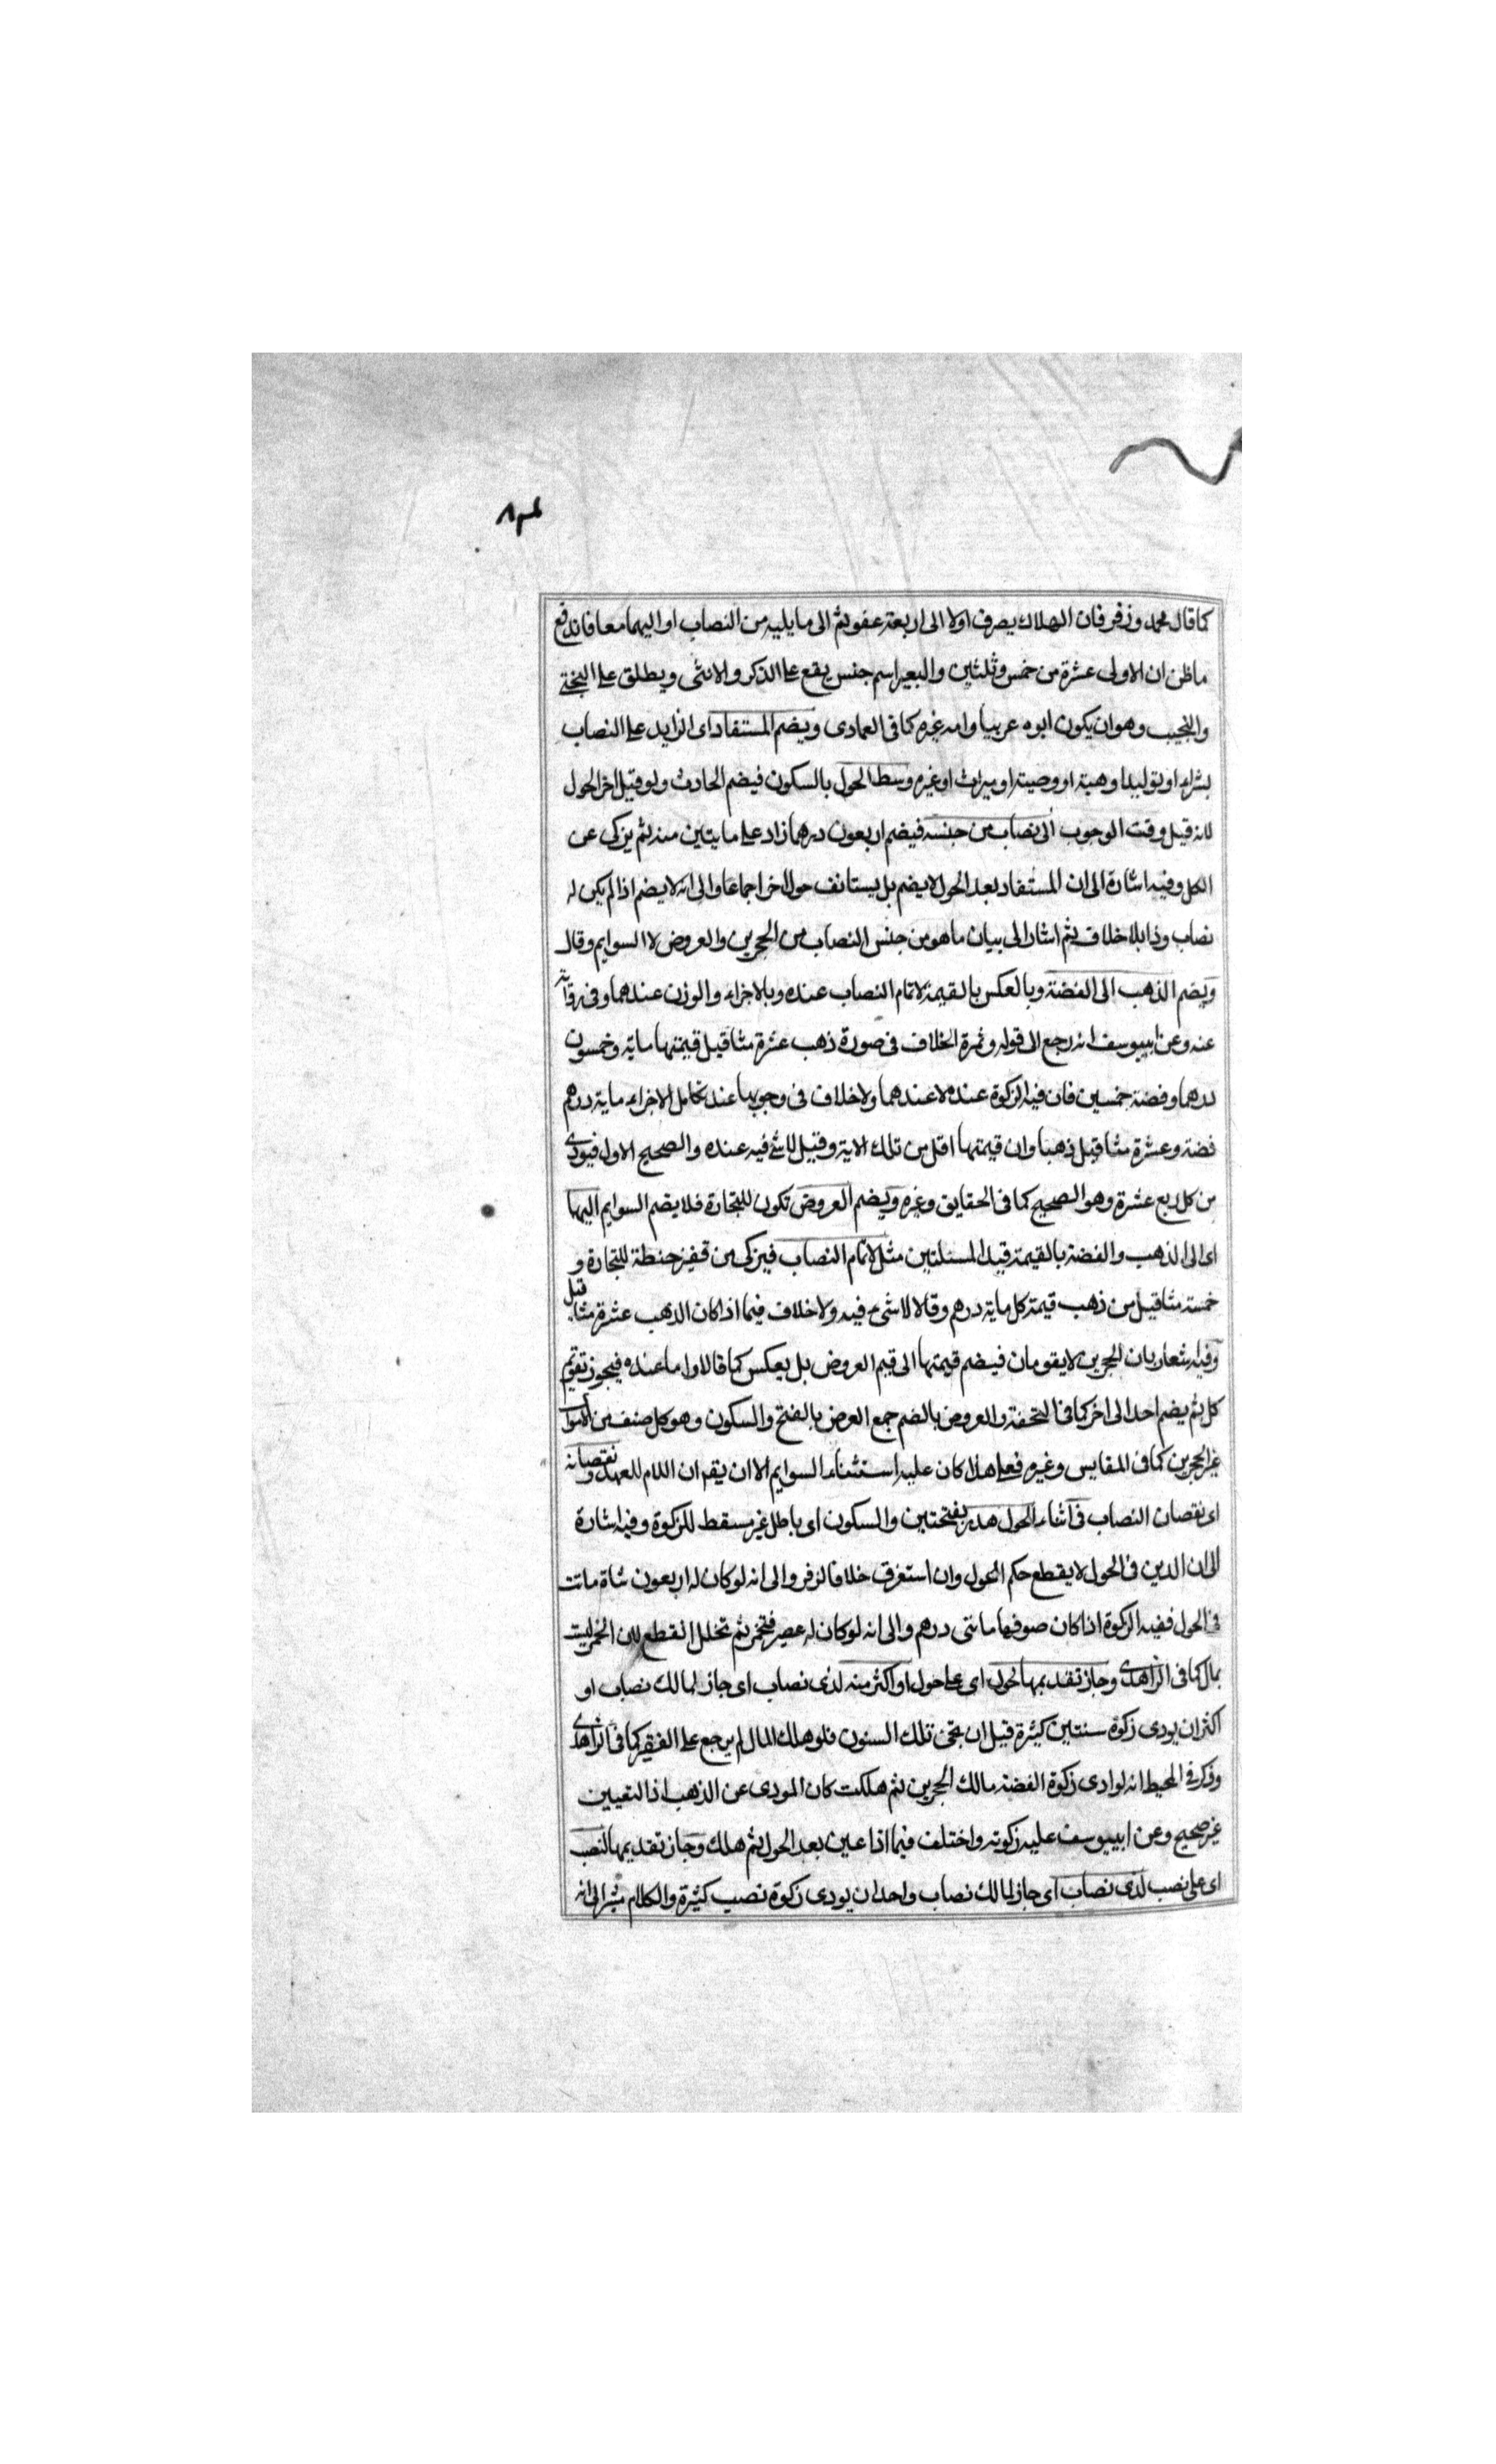 كما قال محمد وزفر فان الهلاك يصرف اولا الى اربعة عفو ثم الى ما يليه من النصاب او اليهما معا فاندفع
ما ظن ان الاولى عشرة من خمس وثلثين والبعير اسم جنس يقع على الذكر والانثى ويطلق على البختي
والنجيب وهو ان يكون ابوه عربيا وامه غيره كما في العمادى ويضم المستفاد اى الزايد على النصاب
بشراء او توليد او هبة او وصية او ميراث او غيره وسط الحول بالسكون فيضم الحادث ولو قبيل اخر الحول
لانه قبيل وقت الوجوب الى نصاب من جنسه فيضم اربعون درهما زاد على مايتين منه ثم يزكى عن
الكل وفيه اشارة الى ان المستفاد بعد الحول لا يضم بل يستانف حول اخر اجماعا والى انه لا يضم اذا لم يكن له
نصاب وذا بلا خلاف ثم اشار الى بيان ما هو من جنس النصاب من الحجرين والعروض لا السوايم وقال
ويضم الذهب الى الفضة وبالعكس بالقيمة لاتمام النصاب عنده وبالاجزاء والوزن عندهما وفي رواية
عنه وعن ابيوسف انه رجع الى قوله وثمرة الخلاف في صورة ذهب عشرة مثاقيل قيمتها ماية وخمسون
درهما وفضة خمسين فان فيه الزكوة عنده لا عندهما ولا خلاف في وجوبها عند تكامل الاجزاء ماية درهم
فضة وعشرة مثاقيل ذهبا وان قيمتها اقل من تلك الاية وقيل لا شئ فيه عنده والصحيح الاول فيودى
من كل ربع عشرة وهو الصحيح كما في الحقايق وغيره ويضم العروض تكون للتجارة فلا يضم السوايم اليها
اى الى الذهب والفضة بالقيمة قيد المسئلتين مثل لاتمام النصاب فيزكى من قفيز حنطة للتجارة و
خمسة مثاقيل من ذهب قيمة كل ماية درهم وقالا لا شيء فيه ولا خلاف فيما اذا كان الذهب عشرة مثاقيل
وفيه اشعار بان الحجرين لا يقومان فيضم قيمتها الى قيم العروض بل يعكس كما قالا واما عنده فيجوز تقويم
كل ثم يضم احد الى اخر كما في التحفة والعروض بالضم جمع العرض بالفتح والسكون وهو كل صنف من الاموال
غير الحجرين كما في المقايس وغيره فعلى هذا كان عليه استثناء السوايم الا ان يقر ان اللام للعهد ونقصانه
اى نقصان النصاب في اثناء الحول هدر بفتحتين والسكون اى باطل غير مسقط للزكوة وفيه اشارة
الى ان الدين في الحول لا يقطع حكم الحول وان استغرق خلافا لزفر والى انه لو كان له اربعون شاة ماتت
في الحول ففيه الزكوة اذا كان صوفها مائتى درهم والى انه لو كان له عصير فتخمر ثم تخلل انقطع لان الخمر ليست
بمال كما في الزاهدى وجاز تقديمها لحول اى على حول او اكثر منه لذى نصاب اى جاز لمالك نصاب او
اكثر ان يودى زكوة سنتين كثيرة قبل ان تجئ تلك السنون فلو هلك المال لم يرجع على الفقير كما في الزاهدى
وذكر في المحيط انه لو ادى زكوة الفضة مالك الحجرين ثم هلكت كان المودى عن الذهب اذ التعيين
غير صحيح وعن ابيوسف عليه زكوته واختلف فيما اذا عين بعد الحول ثم هلك وجاز تقديمها لنصب
اى على نصب لذى نصاب اى جاز لمالك نصاب واحد ان يودى زكوة نصب كثيرة والكلام مشير الى انه